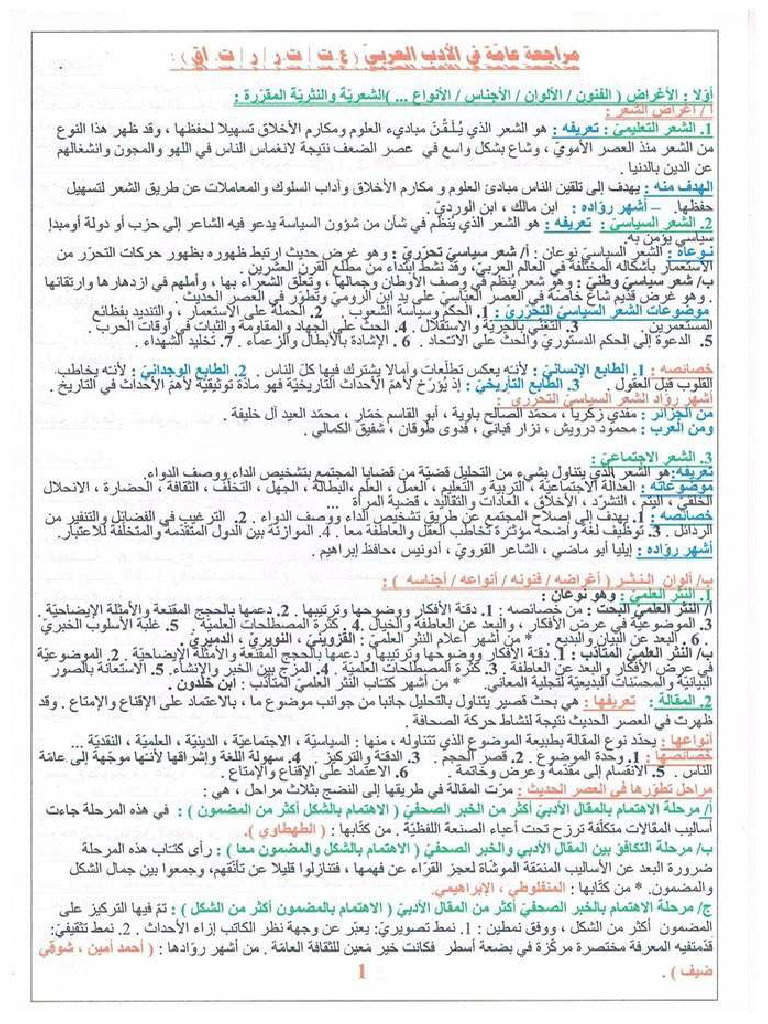 مراجعة عامّة في الأدب العربيّ ( ع.ت | ت.ر | ر | ت. اق ) :
أوّلا : الأغراض ( الفنون / الألوان / الأجناس / الأنواع ... )الشعريّة والنثريّة المقرّرة :
أ / أغراض الشعر :
1. الشعر التعليميّ : تعريفه : هو الشعر الذي يُلـقّـنُ مباديء العلوم ومكارم الأخلاق تسهيلا لحفظها ، وقد ظهر هذا النوع
من الشعر منذ العصر الأمويّ ، وشاع بشكل واسع في عصر الضعف نتيجة لانغماس الناس في اللهو والمجون وانشغالهم
عن الدين بالدنيا .
الهدف منه : يهدف إلى تلقين الناس مبادئ العلوم و مكارم الأخلاق وآداب السلوك والمعاملات عن طريق الشعر لتسهيل
حفظها. – أشهر روّاده : ابن مالك ، ابن الورديّ .
2. الشعر السياسيّ : تعريفه : هو الشعر الذي يُنظم في شأن من شؤون السياسة يدعو فيه الشاعر إلى حزب أو دولة أومبدإ
سياسي يؤمن به.
نوعاه : الشعر السياسيّ نوعان : أ/ شعر سياسيّ تحرّري : وهو غرض حديث ارتبط ظهوره بظهور حركات التحرّر من
الاستعمار بأشكاله المختلفة في العالم العربيّ، وقد نشط ابتداء من مطلع القرن العشرين .
ب/ شعر سياسيّ وطنيّ : وهو شعر يُنظم في وصف الأوطان وجمالها، وتعلّق الشعراء بها ، وأملهم في ازدهارها وارتقائها
. وهو غرض قديم شاع خاصّة في العصر العبّاسي على يد ابن الروميّ وتطوّر في العصر الحديث .
موضوعات الشعر السياسيّ التحرّريّ : 1. الحكم وسياسة الشعوب . 2. الحملة على الاستعمار ، والتنديد بفظائع
المستعمرين . 3. التغنّي بالحرّية والاستقلال . 4. الحثّ على الجهاد والمقاومة والثبات في أوقات الحرب .
5. الدعوة إلى الحكم الدستوريّ والحثّ على الاتّحاد . 6. الإشادة بالأبطال والزعماء . 7. تخليد الشهداء .
خصائصه : 1. الطابع الإنسانيّ : لأنه يعكس تطلّعات وآمالا يشترك فيها كلّ الناس . 2. الطابع الوجدانيّ : لأنه يخاطب
القلوب قبل العقول . 3. الطابع التاريخيّ : إذ يُؤرّخ لأهمّ الأحداث التاريخيّة فهو مادّة توثيقيّة لأهمّ الأحداث في التاريخ .
أشهر روّاد الشعر السياسيّ التحرري :
من الجزائر : مفدي زكريا ، محمّد الصالح باوية ، أبو القاسم خمّار ، محمّد العيد آل خليفة .
ومن العرب : محمود درويش ، نزار قباني ، فدوى طوقان ، شفيق الكمالي .
3. الشعر الاجتماعيّ :
تعريفه:هو الشعر الذي يتناول بشيء من التحليل قضيّة من قضايا المجتمع بتشخيص الداء ووصف الدواء.
موضوعاته : العدالة الاجتماعيّة ، التربية و التعليم ، العمل ، العلم ،البطالة ، الجهل ، التخلّف ، الثقافة ، الحضارة ، الانحلال
الخلقي ، اليتم ، التشرّد ، الأخلاق ، العادات والتقاليد ، قضية المرأة ...
خصائصه : 1. يهدف إلى إصلاح المجتمع عن طريق تشخيص الداء ووصف الدواء . 2. الترغيب في الفضائل والتنفير من
الرذائل . 3. توظيف لغة واضحة مؤثرة تخاطب العقل والعاطفة معا . 4. الموازنة بين الدول المتقدّمة والمتخلّفة للاعتبار.
أشهر روّاده : إيليا أبو ماضي ، الشاعر القروي ، أدونيس ،حافظ إبراهيم .
ب/ ألوان النـثـر ( أغراضه / فنونه / أنواعه / أجناسه ) :
1. النثر العلميّ : وهو نوعان :
أ/ النثر العلميّ البحت : من خصائصه : 1. دقـة الأفكار ووضوحها وترتيبها . 2. دعمها بالحجج المقنعة والأمثلة الإيضاحيّة .
3. الموضوعيّة في عرض الأفكار ، والبعد عن العاطفة والخيال . 4. كثرة المصطلحات العلميّة . 5. غلبة الأسلوب الخبريّ
. 6. البعد عن البيان والبديع . * من أشهر أعلام النثر العلميّ : القزوينيّ ، النويريّ ، الدميريّ .
ب/ النثر العلميّ المتأدّب : 1. دقـة الأفكار ووضوحها وترتيبها و دعمها بالحجج المقنعة والأمثلة الإيضاحيّة . 2. الموضوعيّة
في عرض الأفكار والبعد عن العاطفة . 3. كثرة المصطلحات العلميّة . 4. المزج بين الخبر والإنشاء. 5. الاستعانة بالصور
البيانيّة والمحسّنات البديعيّة لتجلية المعاني. * من أشهر كتـاب النثر العلميّ المتأدّب : ابن خلدون .
2. المقالة : تعريفها : هي بحث قصير يتناول بالتحليل جانبا من جوانب موضوع ما ، بالاعتماد على الإقناع والإمتاع . وقد
ظهرت في العصر الحديث نتيجة لنشاط حركة الصحافة .
أنواعها : يحدّد نوع المقالة بطبيعة الموضوع الذي تتناوله ، منها : السياسيّة ، الاجتماعيّة ، الدينيّة ، العلميّة ، النقديّة ...
خصائصها : 1. وحدة الموضوع . 2. قصر الحجم . 3. الدقـة والتركيز . 4. سهولة اللغة وإشراقها لأنـها موجّهة إلى عامّة
الناس . 5. الانقسام إلى مقدّمة وعرض وخاتمة . 6. الاعتماد على الإقناع والإمتاع.
مراحل تطوّرها في العصر الحديث : مرّت المقالة في طريقها إلى النضج بثلاث مراحل ، هي :
أ/ مرحلة الاهتمام بالمقال الأدبيّ أكثر من الخبر الصحفيّ ( الاهتمام بالشكل أكثر من المضمون ) : في هذه المرحلة جاءت
أساليب المقالات متكلّفة ترزح تحت أعباء الصنعة اللفظيّة . من كتّابها : ( الطهطاوي ).
ب/ مرحلة التكافؤ بين المقال الأدبي والخبر الصحفيّ ( الاهتمام بالشكل والمضمون معا ) : رأى كتاب هذه المرحلة
ضرورة البعد عن الأساليب المنمّقة الموشّاة لعجز القرّاء عن فهمها ، فتنازلوا قليلا عن تأنّقهم، وجمعوا بين جمال الشكل
والمضمون. * من كتّابها : المنفلوطي ، الإبراهيمي.
ج/ مرحلة الاهتمام بالخبر الصحفيّ أكثر من المقال الأدبيّ ( الاهتمام بالمضمون أكثر من الشكل ) : تمّ فيها التركيز على
المضمون أكثر من الشكل ، ووفق نمطين : 1. نمط تصويريّ: يعبّر عن وجهة نظر الكاتب إزاء الأحداث . 2. نمط تثقيفيّ:
قدّمتفيه المعرفة مختصرة مركّزة في بضعة أسطر فكانت خير مَعين للثقافة العامّة . من أشهر روّادها : ( أحمد أمين ، شوقي
ضيف ) .
1